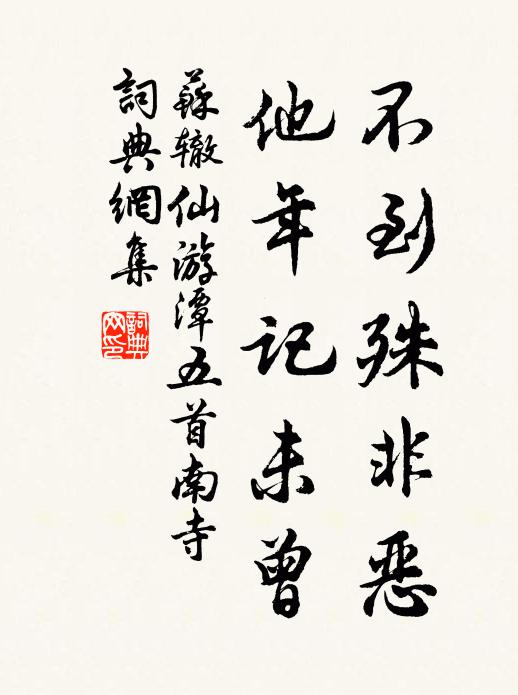 不到殊非恶
他年记未曾
蘇辙仙游潭五首南寺
詞典網集
詞典
网印